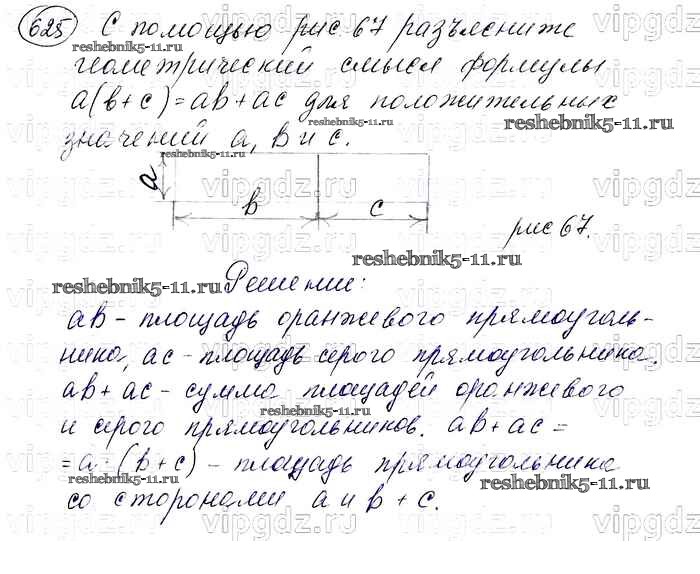 625 С помощью рис 67 разъясниже
reshebnik5-11.ru
геометрический смысл формулы
a(b+c)=ab+ac для положительных
reshebnik5-11.ru
reshebnik5-11.ru
значений a, b и c.
a
b c
рис 67.
reshebnik5-11.ru
reshebnik5-11.ru
Решение:
ab - площадь оранжевого прямоуголь-
ника, ac - площадь серого прямоугольника.
ab + ac - сумма площадей оранжевого
reshebnik5-11.ru
и серого прямоугольников. ab + ac =
= a · (b + c) - площадь прямоугольника
reshebnik5-11.ru
reshebnik5-11.ru
со сторонами a и b + c.
vipgdz.ru